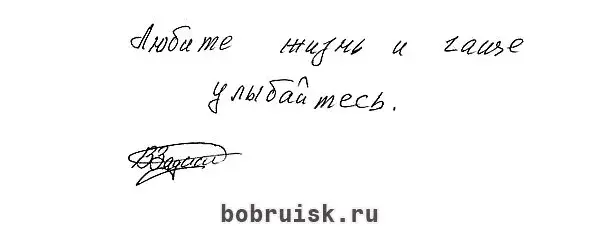 Любите жизнь и чаще
улыбайтесь.
bobruisk.ru